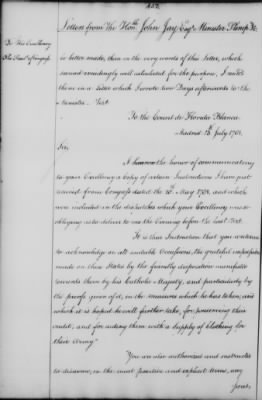 Letters from The Honble John Jay Esqr Minister Plenipo &c
To His Excellency
The President of Congress
is better made, than in the very words of this letter, which
seemed exceedingly well calculated for the purpose, I united
them in a Letter which I wrote two Days afterwards to the
Minister. Viz.
To the Count de Florida Blanca
Madrid July 1781.
Sir,
I have now the honor of communicating
to your Excellency a Copy of certain Instructions I have just
received from Congress dated the of May 1781, and which
were included in the dispatches which your Excellency was so
obliging as to deliver to me the Evening before the last. Viz.
"It is their Instruction that you continue
to acknowledge on all suitable Occasions, the grateful impression
made on these States by the friendly disposition manifested
towards them by his Catholic Majesty, and particularly by
the proofs given of it, in the measures which he has taken, and
which it is hoped he will further take, for preserving their
credit; and for aiding them with a Supply of Cloathing for
their Army.
You are also authorized and instructed
to disavow, in the most positive and explicit terms, any